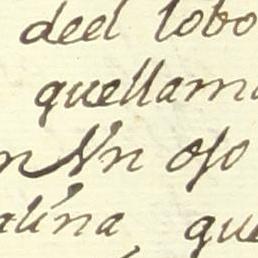 deel lobo
quellama
n Vn oso
alina, que